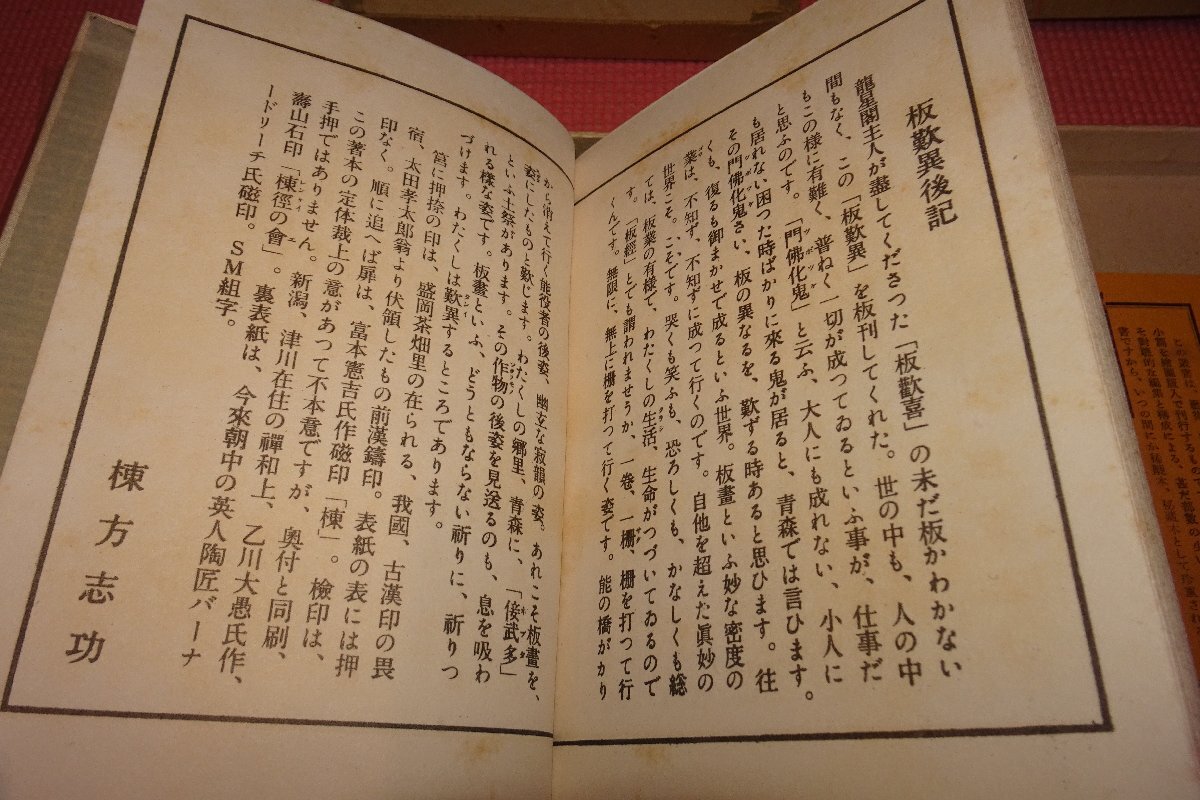 板歎異後記
龍星閣主人が盡してくださつた「板歡喜」の未だ板かわかない
間もなく、この「板歎異」を板刊してくれた。世の中も、人の中
もこの様に有難く、普ねく一切が成つてゐるといふ事が、仕事だ
と思ふのです。「門佛化鬼」と云ふ、大人にも成れない、小人に
も居れない困つた時ばかりに來る鬼が居ると、青森では言ひます。
その門佛化鬼さい、板の異なるを、歎ずる時あると思ひます。往
くも、復るも御まかせで成るといふ世界。板畫といふ妙な密度の
業は、不知ず、不知ずに成つて行くのです。自他を超えた眞妙の
世界こそ。こそです。哭くも笑ふも、恐ろしくも、かなしくも總
ては、板業の有様で、わたくしの生活、生命がつづいてゐるので
す。「板經」とでも謂われませうか、一卷、一柵、柵を打つて行
くんです。無限に、無上に柵を打つて行く姿です。能の橋がかり
から消えて行く能役者の後姿、幽玄な寂韻の姿。あれこそ板畫を、
姿にしたものと歎じます。わたくしの郷里、青森に、「倿武多」
といふ土祭があります。その作物の後姿を見送るのも、息を吸わ
れる樣な姿です。板畫といふ、どうともならない祈りに、祈りつ
づけます。わたくしは歎異するところであります。
筥に押捺の印は、盛岡茶畑里の在られる、我國、古漢印の畏
宿、太田孝太郎翁より伏領したもの前漢鑄印。表紙の表には押
印なく。順に追へば扉は、富本憲吉氏作磁印「棟」。檢印は、
この著本の定体裁上の意があつて不本意ですが、奥付と同刷、
手押ではありません。新潟、津川在住の禪和上、乙川大愚氏作、
壽山石印「棟徑の會」。裏表紙は、今來朝中の英人陶匠バーナ
ードリーチ氏磁印。SM組字。
棟方志功